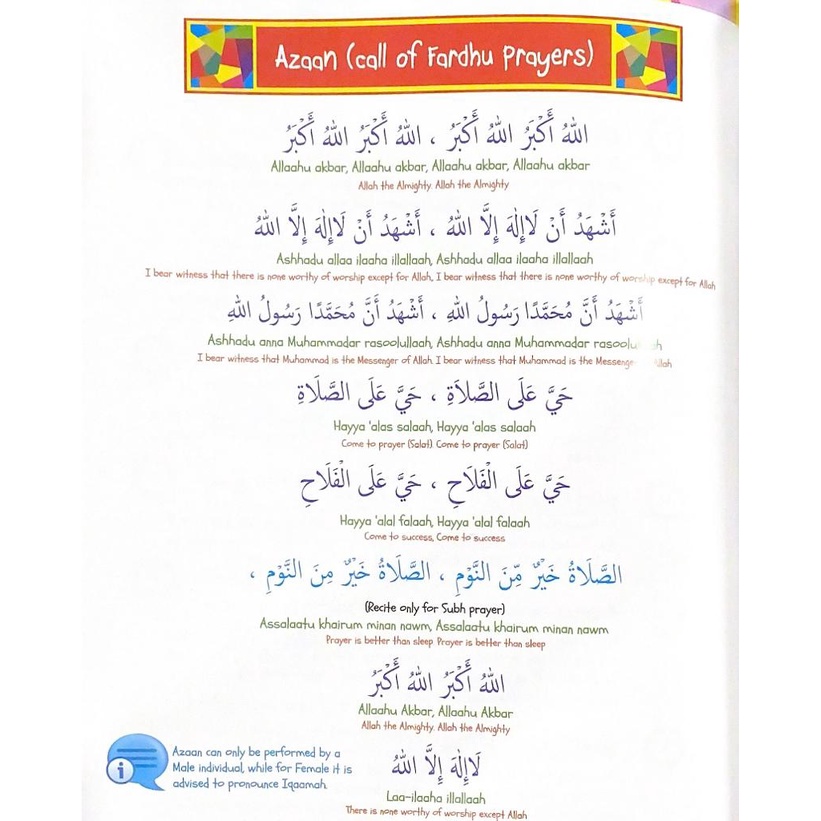 Azaan (call of Fardhu Prayers)
اللهُ أَكْبَرُ اللهُ أَكْبَرُ ، اللهُ أَكْبَرُ اللهُ أَكْبَرُ
Allaahu akbar, Allaahu akbar, Allaahu akbar, Allaahu akbar
Allah the Almighty. Allah the Almighty
أَشْهَدُ أَنْ لَاإِلٰهَ إِلَّا اللهُ ، أَشْهَدُ أَنْ لَاإِلٰهَ إِلَّا اللهُ
Ashhadu allaa ilaaha illallaah, Ashhadu allaa ilaaha illallaah
I bear witness that there is none worthy of worship except for Allah, I bear witness that there is none worthy of worship except for Allah
أَشْهَدُ أَنَّ مُحَمَّدًا رَسُولُ اللهِ ، أَشْهَدُ أَنَّ مُحَمَّدًا رَسُولُ اللهِ
Ashhadu anna Muhammadar rasoolullaah, Ashhadu anna Muhammadar
I bear witness that Muhammad is the Messenger of Allah. I bear witness that Muhammad is the
حَيَّ عَلَى الصَّلَاةِ ، حَيَّ عَلَى الصَّلَاةِ
Hayya 'alas salaah, Hayya 'alas salaah
Come to prayer (Salat) Come to prayer (Salat)
حَيَّ عَلَى الْفَلَاحِ ، حَيَّ عَلَى الْفَلَاحِ
Hayya 'alal falaah, Hayya 'alal falaah
Come to success, Come to success
الصَّلَاةُ خَيْرٌ مِّنَ النَّوْمِ ، الصَّلَاةُ خَيْرٌ مِنَ النَّوْمِ ،
(Recite only for Subh prayer)
Assalaatu khairum minan nawm, Assalaatu khairum minan nawm
Prayer is better than sleep Prayer is better than sleep
اللهُ أَكْبَرُ اللهُ أَكْبَرُ
Allaahu Akbar, Allaahu Akbar
Allah the Almighty. Allah the Almighty
لَاإِلٰهَ إِلَّا اللهُ
Laa-ilaaha illallaah
There is none worthy of worship except Allah
Azaan can only be performed by a
Male individual, while for Female it is
advised to pronounce Iqaamah.